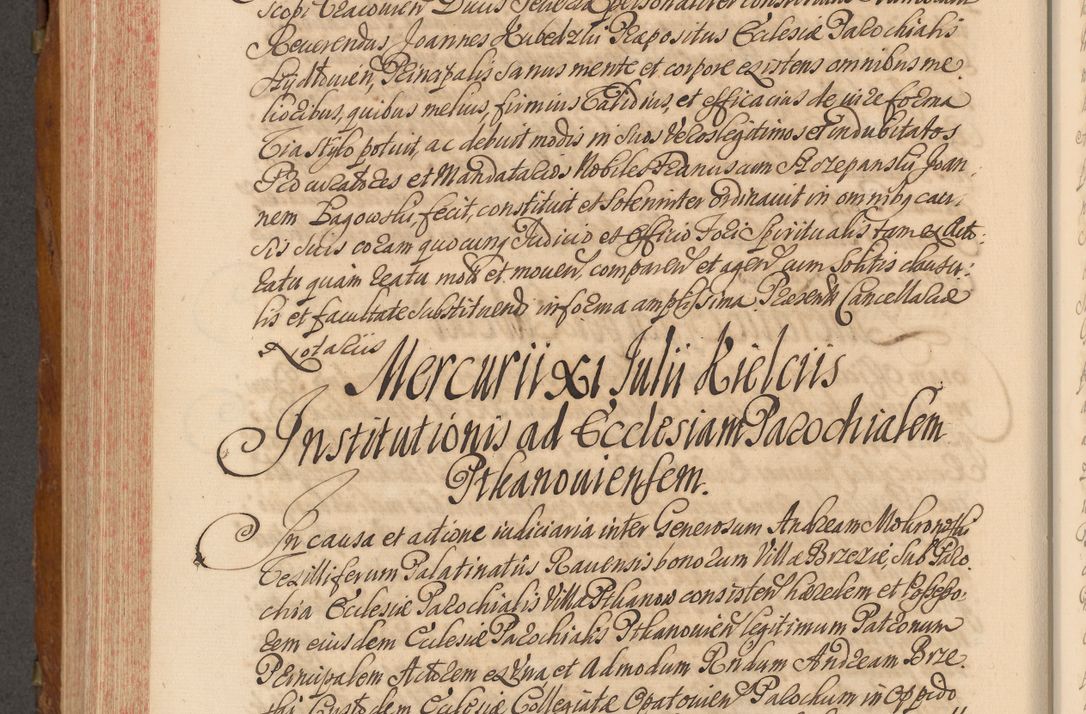 scopi Cracovien Ducis Severiæ personaliter constitutus
Reverendus Joannes Kubedzki Præpositus Ecclesiæ Parochialis
Hydtovien, Principalis sanus mente et corpore existens omnibus me
lioribus, quibus melius, firmius validius, et efficacius de iure forma
via stylo potuit, ac debuit modis in suos veros legitimos et indubitatos
Procuratores et Mandatarios Nobiles Franciscum Strzepanski Joan,
nem Bagowski, fecit, constituit et solenniter ordinavit in omnibq cau,
sis suis coram quocunq Judicio et Officio Foriq Spiritualis tam ex acto,
ratu quam reatu motis et moven, comparen et agen cum solitis clausu,
lis et facultate substituendi in forma amplissima Præsente Cancellariæ
Notarius
Mercurii XI Julii Kielciis
Institutionis ad Ecclesiam Parochialem
Ptkanoviensem.
In causa et actione iudiciaria inter Generosum Andream Mokronoski
Vexilliferum Palatinatûs Ravensis bonorum Villæ Brzezie, Sub Paro,
chia Ecclesiæ Parochialis Villæ Ptkanow consisten hæredem et Possesso
rem eiusdem Ecclesiæ Parochialis Ptkanovien legitimum Patronum
Principalem Actorem ex Una et Admodum Rndum Andream Brze
ski Custodem Ecclesiæ Collegiatæ Opatovien Parochum in Oppido